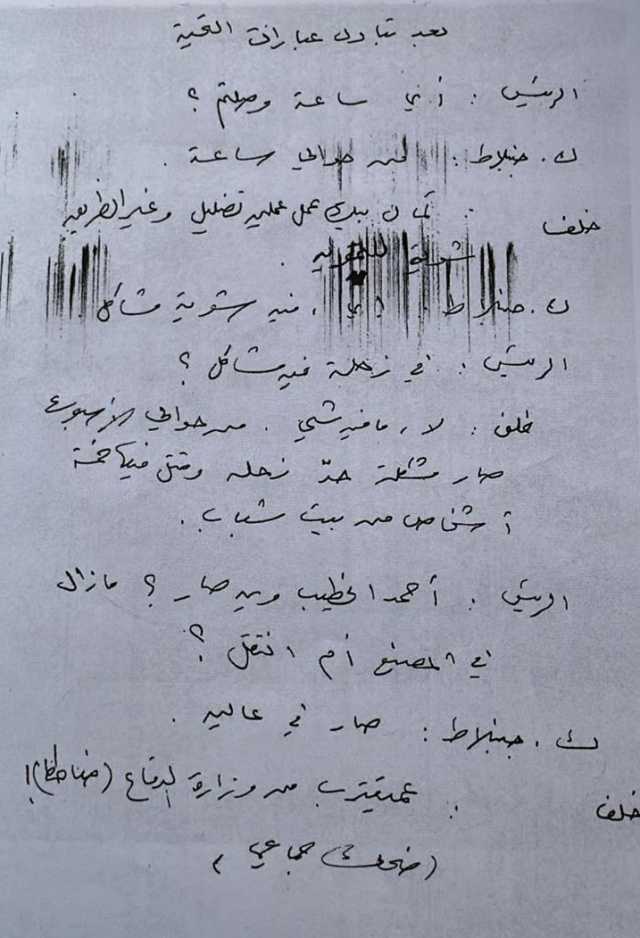 بعد تبادل عبارات التحية
الرئيس : أي ساعة وصلتم ؟
ك . جنبلاط : من حوالي ساعة .
خلف : كمال بيك عمل عملية تضليل وغير الطريق
شوي للتمويه .
ك . جنبلاط : إي ، فيه شوية مشاكل .
الرئيس : في زحلة فيه مشاكل ؟
خلف : لا ، ما فيه شي . من حوالي الأسبوع
صار مشكلة حدّ زحله وقتل فيها خمسة
أشخاص من بيت شباب .
الرئيس : أحمد الخطيب وين صار ؟ مازال
في المصنع أم انتقل ؟
ك . جنبلاط : صار في عاليه .
خلف : عميقترب من وزارة الدفاع (ضاحكا) !
(ضحك جماعي)